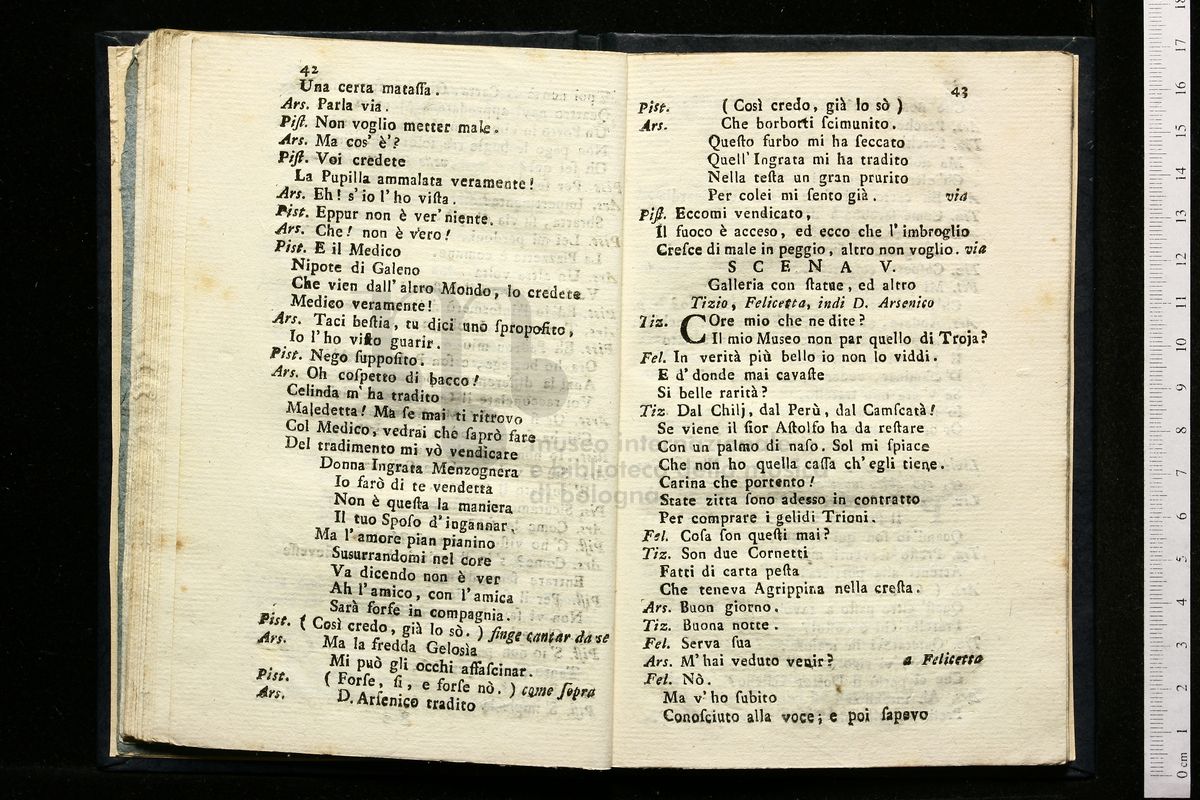 42
Una certa mataſſa.
Ars. Parla via.
Piſt. Non voglio metter male.
Ars. Ma cos' è'?
Piſt. Voi credete
La Pupilla ammalata veramente!
Ars. Eh! s'io l'ho viſta.
Pist. Eppur non è ver'niente.
Ars. Che! non è vero!
Pist. E il Medico
Nipote di Galeno
Che vien dall'altro Mondo, lo credete
Medico veramente!
Ars. Taci beſtia, tu dici uno ſpropoſito,
Io l'ho viſto guarir.
Pist. Nego ſuppoſito.
Ars. Oh coſpetto di bacco!
Celinda m'ha tradito
Maledetta! Ma ſe mai ti ritrovo
Col Medico, vedrai che ſaprò fare
Del tradimento mi vò vendicare
Donna Ingrata Menzognera
Io farò di te vendetta
Non è queſta la maniera
Il tuo Spoſo d'ingannar.
Ma l'amore pian pianino
Susurrandomi nel core
Va dicendo non è ver
Ah l'amico, con l'amica
Sarà forſe in compagnia.
Pist. (Così credo, già lo sò.) finge cantar da se
Ars. Ma la fredda Gelosìa
Mi può gli occhi aſſaſcinar.
Pist. (Forſe, ſi, e forſe nò.) come ſopra
Ars. D. Arſenico tradito
43
Pist. (Così credo, già lo sò)
Ars. Che borborti ſcimunito.
Queſto furbo mi ha ſeccato
Quell'Ingrata mi ha tradito
Nella teſta un gran prurito
Per colei mi ſento già. via
Piſt. Eccomi vendicato,
Il fuoco è acceso, ed ecco che l'imbroglio
Creſce di male in peggio, altro non voglio. via
SCENA V.
Galleria con ſtatue, ed altro
Tizio, Felicetta, indi D. Arsenico
Tiz. COre mio che ne dite?
Il mio Museo non par quello di Troja?
Fel. In verità più bello io non lo viddi.
E d'donde mai cavaſte
Si belle rarità?
Tiz. Dal Chilj, dal Perù, dal Camſcatà!
Se viene il ſior Aſtolfo ha da reſtare
Con un palmo di naſo. Sol mi ſpiace
Che non ho quella caſſa ch'egli tiene.
Carina che portento!
State zitta ſono adesso in contratto
Per comprare i gelidi Trioni.
Fel. Coſa ſon queſti mai?
Tiz. Son due Cornetti
Fatti di carta peſta
Che teneva Agrippina nella creſta.
Ars. Buon giorno.
Tiz. Buona notte.
Fel. Serva ſua
Ars. M'hai veduto venir? a Felicetta
Fel. Nò.
Ma v'ho ſubito
Conoſciuto alla voce; e poi ſapevo
museo internazionale
e biblioteca della musica
di bologna
0 cm 1 2 3 4 5 6 7 8 9 10 11 12 13 14 15 16 17 18